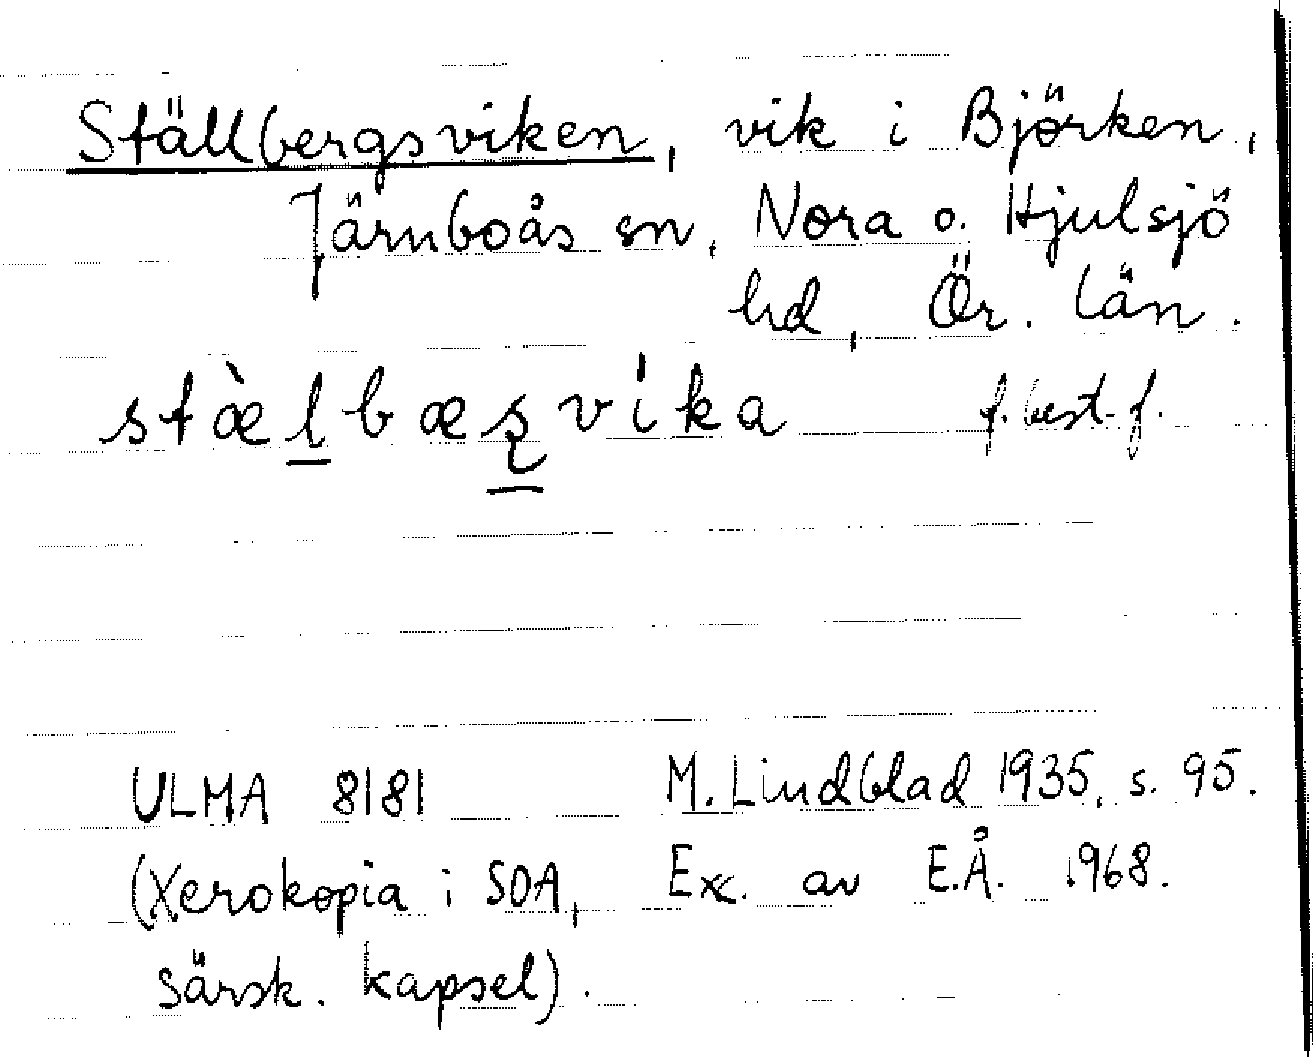 Ställbergsviken, vik i Björken,
Järnboås sn, Nora o. Hjulsjö
hd, Ör. län.
stæ̀l̲bæʂ̲víka f. best. f.
ULMA 8181 M. Lindblad 1935, s. 95.
(Xerokopia i SOA, Exc. av E.Å. 1968.
särsk. kapsel).